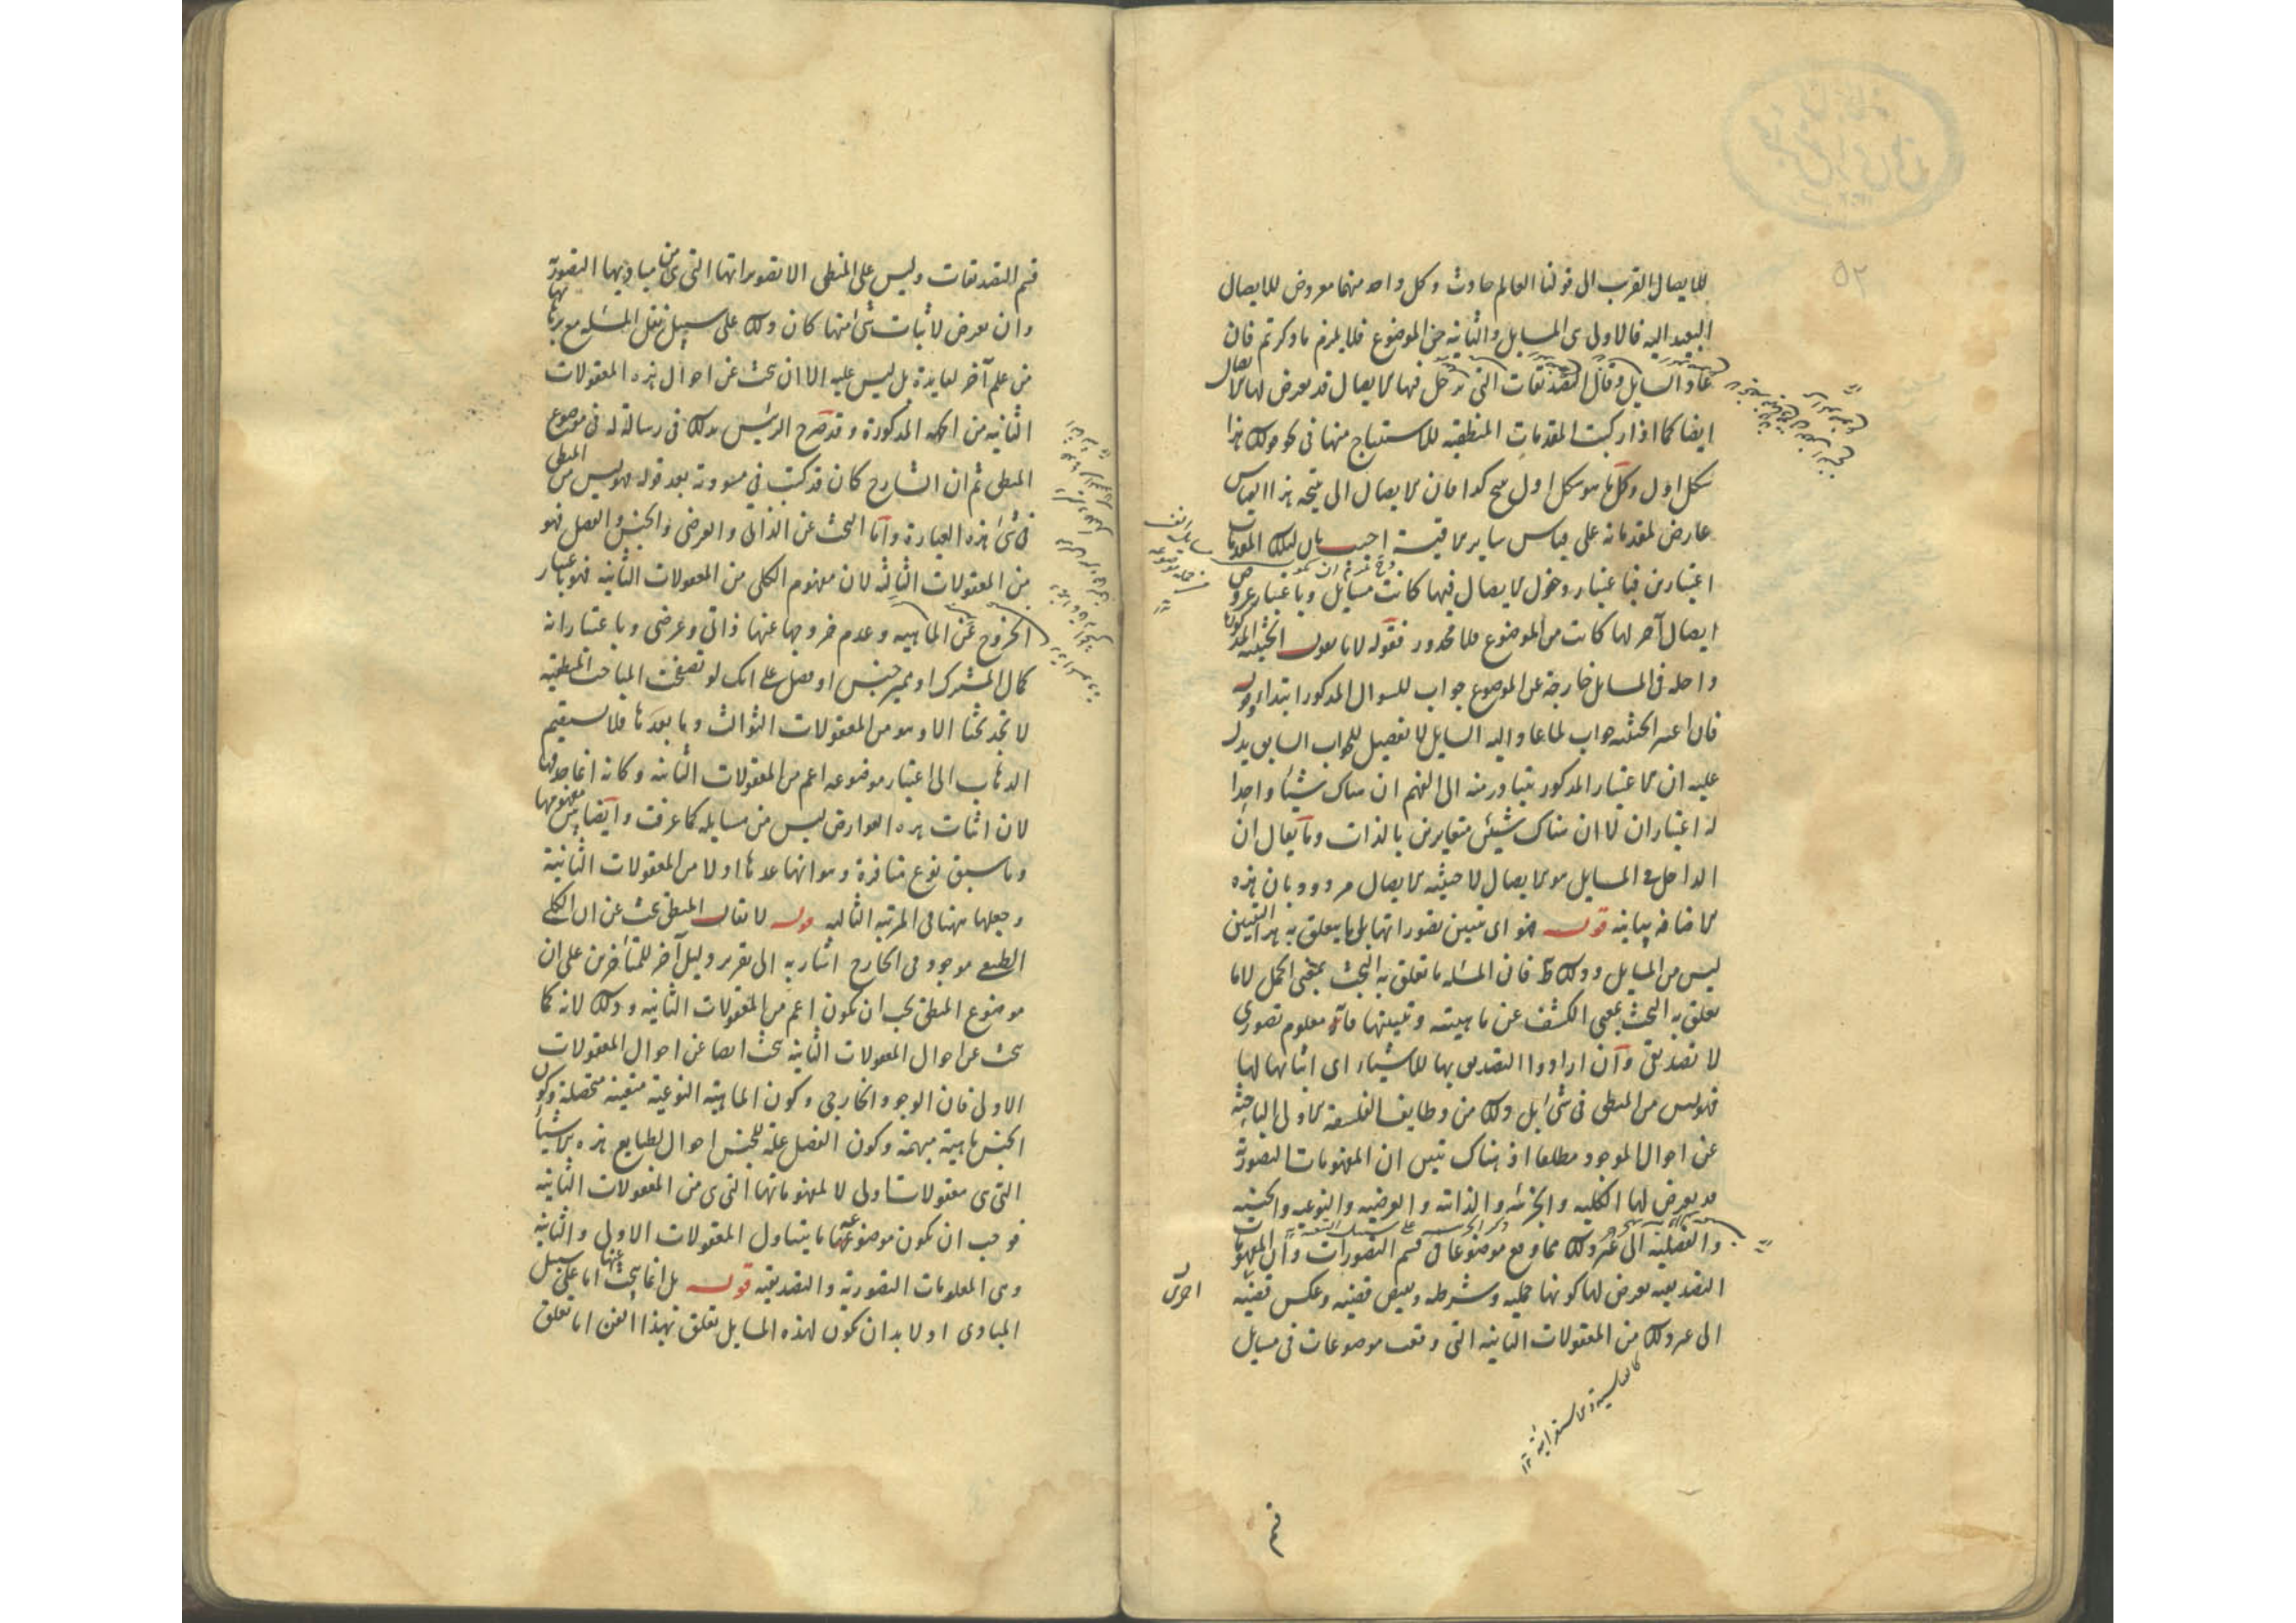 للايصال القريب الى قولنا العالم حادث وكل واحد منهما معروض للايصال
البعيد اليه فالاولى هى المسايل والثانية من الموضوع فلا يلزم ما ذكرتم فان
عاد السايل وقال التصديقات التى يدخل فيها الايصال قد يعرض لها الايصال
ايضا كما اذا ركبت المقدمات المنطقيه للاستنتاج منها فى نحو قولك هذا
شكل اول وكل ما هو شكل اول ينتج كذا فان الايصال الى نتيجه هذا القياس
عارض لمقدماته على قياس ساير الاقيسة اجيب بان لتلك المقدمات
اعتبارين فباعتبار دخول الايصال فيها كانت مسايل وباعتبار عروض
ايصال آخر لها كانت من الموضوع فلا محذور فقوله لانا نقول الحيثيه المذكورة
داخله فى المسايل خارجة عن الموضوع جواب للسوال المذكور ابتداء وقوله
فان اعتبر الحيثيه جواب لما عاد اليه السايل لا تفصيل للجواب السابق يدل
عليه ان الاعتبار المذكور يتبادر منه الى الفهم ان هناك شيئا واحدا
له اعتباران لا ان هناك شيئين متغايرين بالذات وما يقال ان
الداخل فى المسايل هو الايصال لا حيثيه الايصال مردود بان هذه
الاضافه بيانية قوله هو اى تبيين تصوراتها بل ما يتعلق به هذا التبيين
ليس من المسايل وذلك ظ فان المسئله ما تعلق به البحث بمعنى الحمل لا ما
تعلق به البحث بمعنى الكشف عن ماهيته وتبيينها فانه معلوم تصورى
لا تصديقى وان ارادوا التصديق بها للاشياء اى اثباتها لها
فهو ليس من المنطق فى شئ بل ذلك من وظايف الفلسفة الاولى الباحثة
عن احوال الموجود مطلقا اذ هناك تبين ان المفهومات التصورية
قد يعرض لها الكليه والجزئيه والذاتيه والعرضيه والنوعيه والجنسيه
والفصليه الى غير ذلك مما وقع موضوعا فى قسم التصورات وان المفهومات
التصديقيه يعرض لها كونها حمليه وشرطيه ونقيض قضيه وعكس قضيه
اخرى
الى غير ذلك من المعقولات الثانيه التى وقعت موضوعات فى مسايل
قسم
قسم التصديقات وليس على المنطقى الا تصوراتها التى هى من مباديها التصورية
وان تعرض لاثبات شئ منها كان ذلك على سبيل نقل المسئله مع برهانها
من علم آخر لفايدة بل ليس عليه الا ان يبحث عن احوال هذه المعقولات
الثانيه من الجهة المذكورة وقد صرح الرئيس بذلك فى رسالة له فى موضوع
المنطق ثم ان الشارح كان قد كتب فى مسودته بعد قوله فهو ليس من المنطق
فى شئ هذه العبارة واما البحث عن الذاتى والعرضى والجنس والفصل فهو
من المعقولات الثالثه لان مفهوم الكلى من المعقولات الثانيه فهو باعتبار
الخروج عن الماهيه وعدم خروجها عنها ذاتى وعرضى وباعتبار انه
كمال المشترك او مميز جنس او فصل على انك لو تصفحت المباحث المنطقيه
لا تجد بحثا الا وهو من المعقولات الثوالث وما بعدها فلا يستقيم
الذهاب الى اعتبار موضوعه اعم من المعقولات الثانيه وكانه انما حذفها
لان اثبات هذه العوارض ليس من مسايله كما عرفت وايضا بين مفهومها
وما سبق نوع منافرة وهو انها عدها اولا من المعقولات الثانية
وجعلها ههنا فى المرتبة الثالثه قوله لا يقال المنطقى يبحث عن ان الكلى
الطبيعى موجود فى الخارج اشار به الى تقرير دليل آخر للمتأخرين على ان
موضوع المنطق يجب ان يكون اعم من المعقولات الثانيه وذلك لانه كما
يبحث عن احوال المعقولات الثانيه يبحث ايضا عن احوال المعقولات
الاولى فان الوجود الخارجى وكون الماهية النوعية متعينة متحصلة وكون
الجنس ماهية مبهمة وكون الفصل علة للجنس احوال لطبايع هذه الاشياء
التى هى معقولات اولى لا لمفهوماتها التى هى من المعقولات الثانيه
فوجب ان يكون موضوعه ما يتناول المعقولات الاولى والثانيه
وهى المعلومات التصورية والتصديقيه قوله بل انما يبحث عنها اما على سبيل
المبادى او لا بد ان يكون لهذه المسايل تعلق بهذا الفن اما تعلق